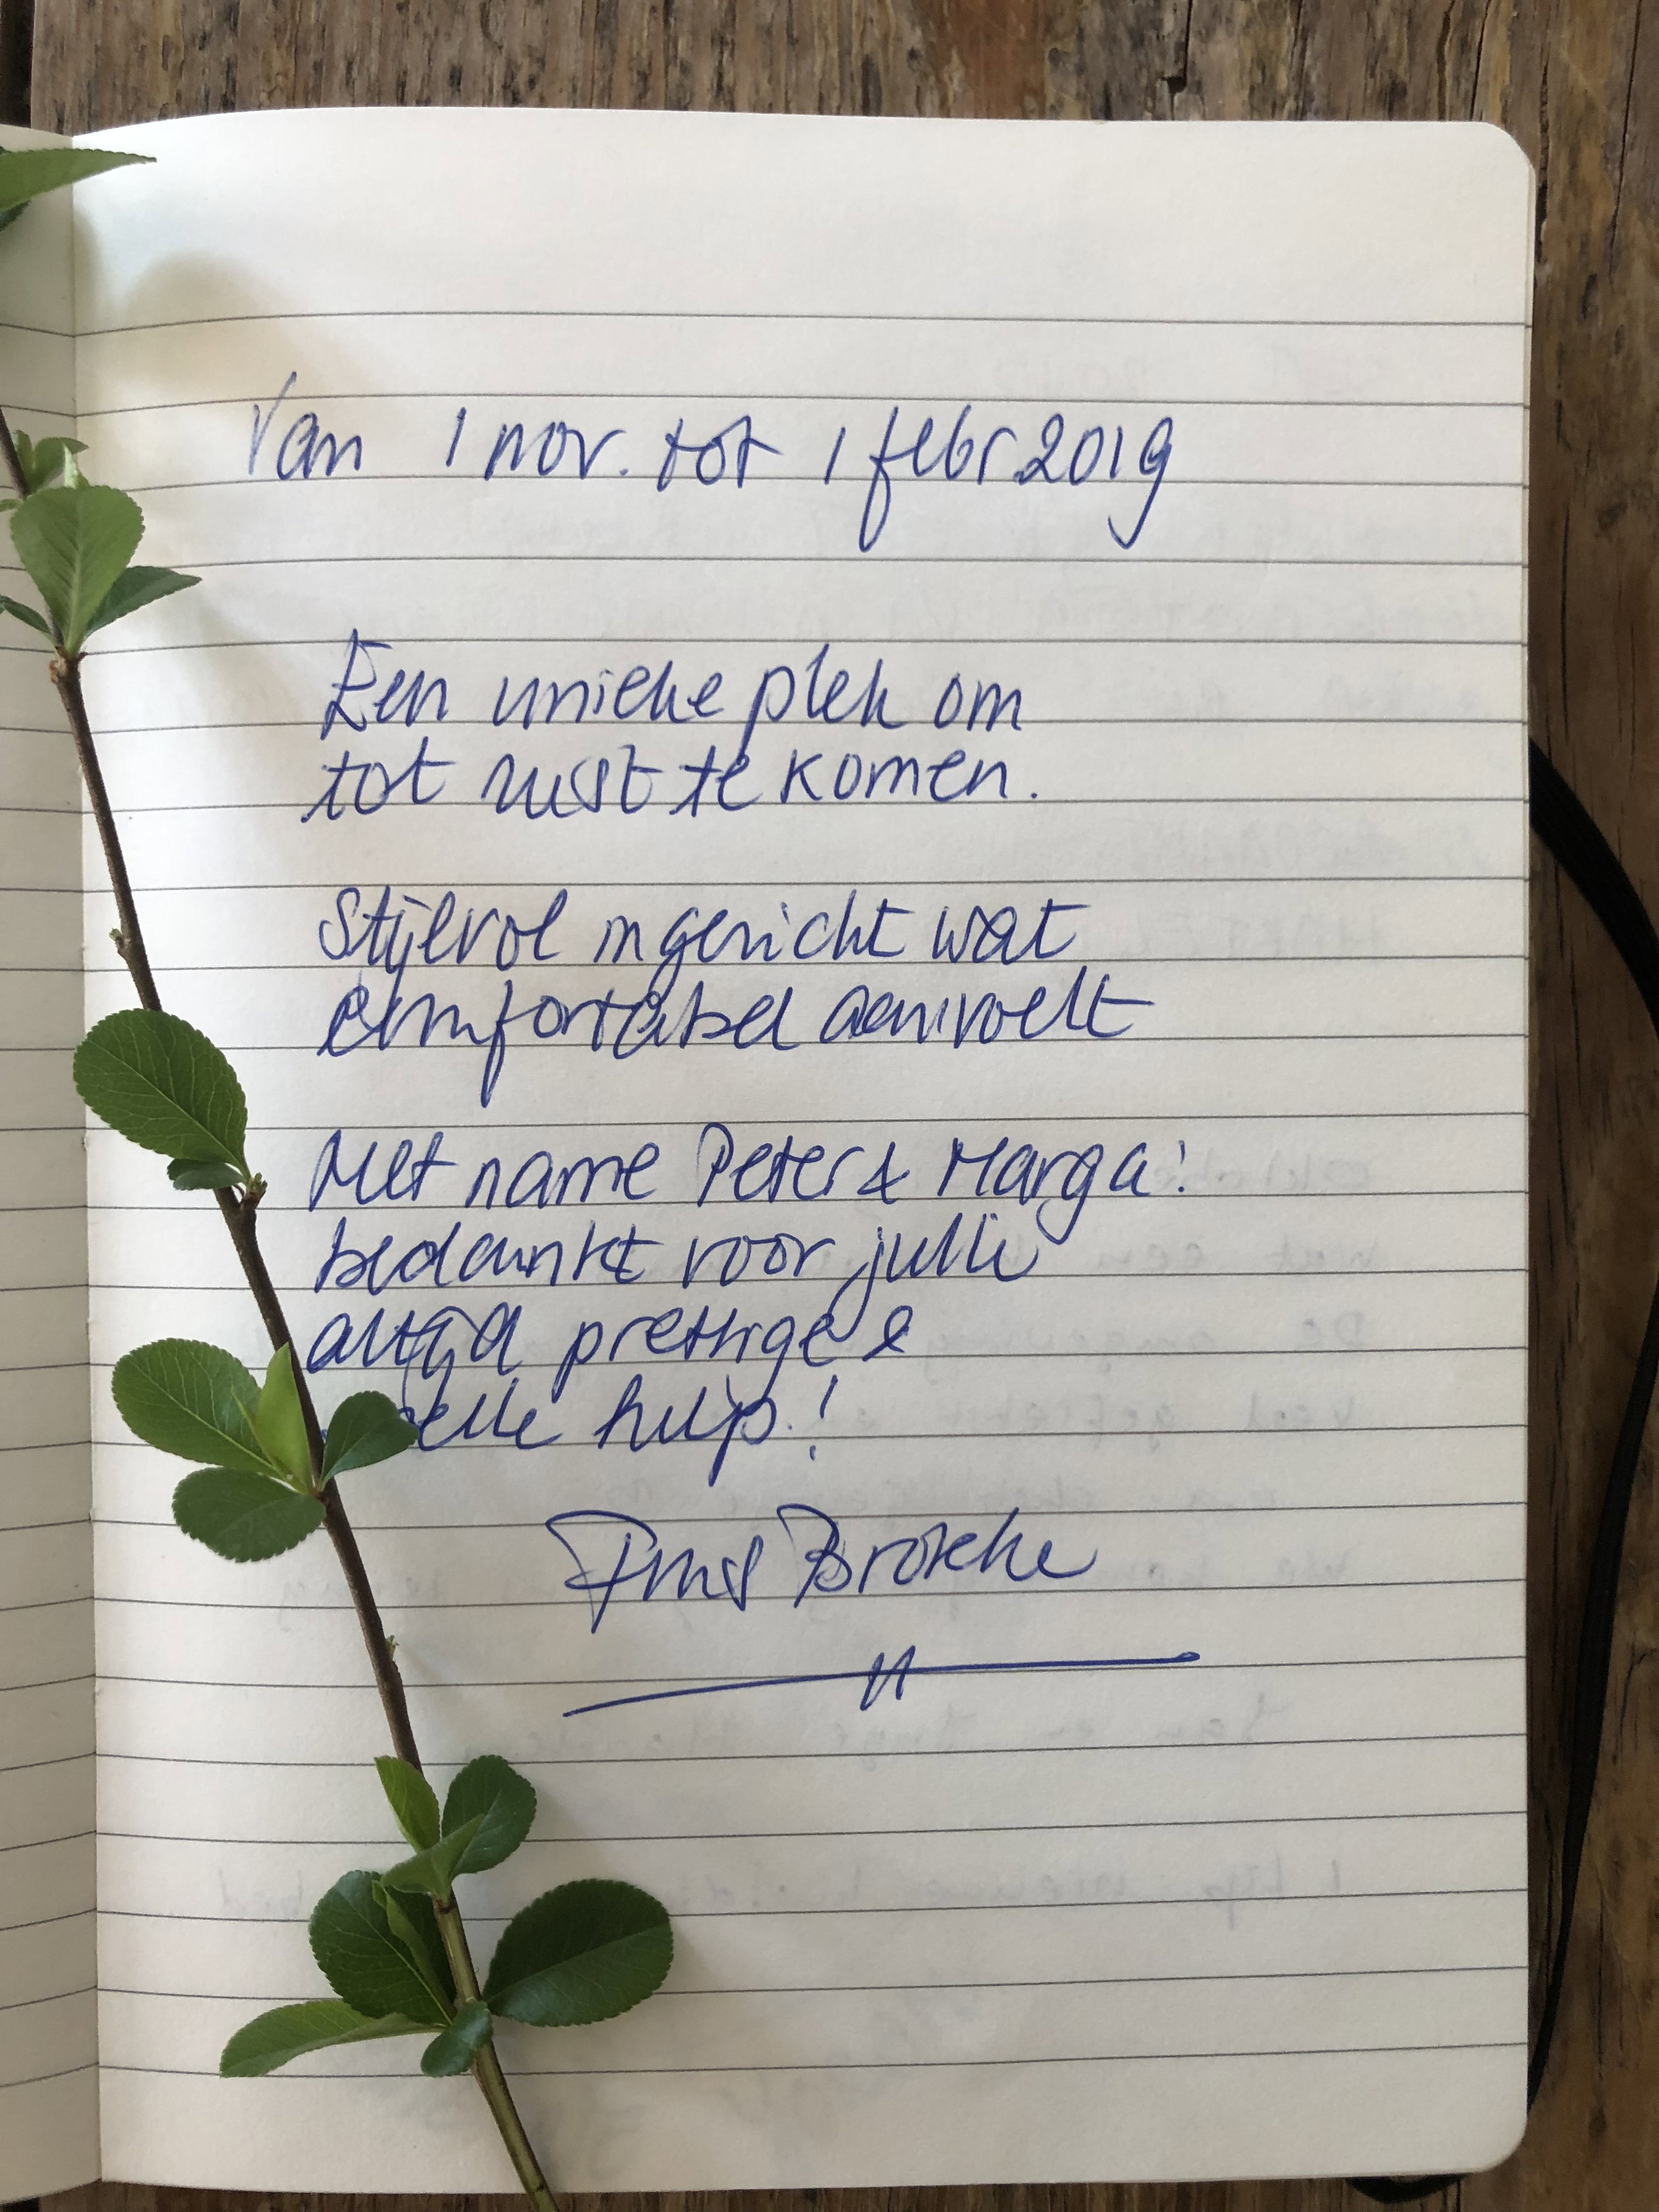 Van 1 nov. tot 1 febr 2019
Een unieke plek om
tot rust te komen.
Stijlvol ingericht wat
comfortabel aanvoelt
Met name Peter & Marga:
bedankt voor jullie
altijd prettige &
hulp!
Brokke